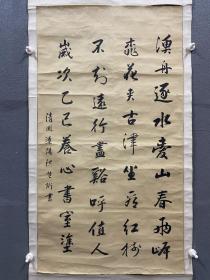 漁舟逐水愛山春兩岸
桃花夾古津坐看紅樹
不知遠行盡谿忽值人
歲次己巳養心書室塗